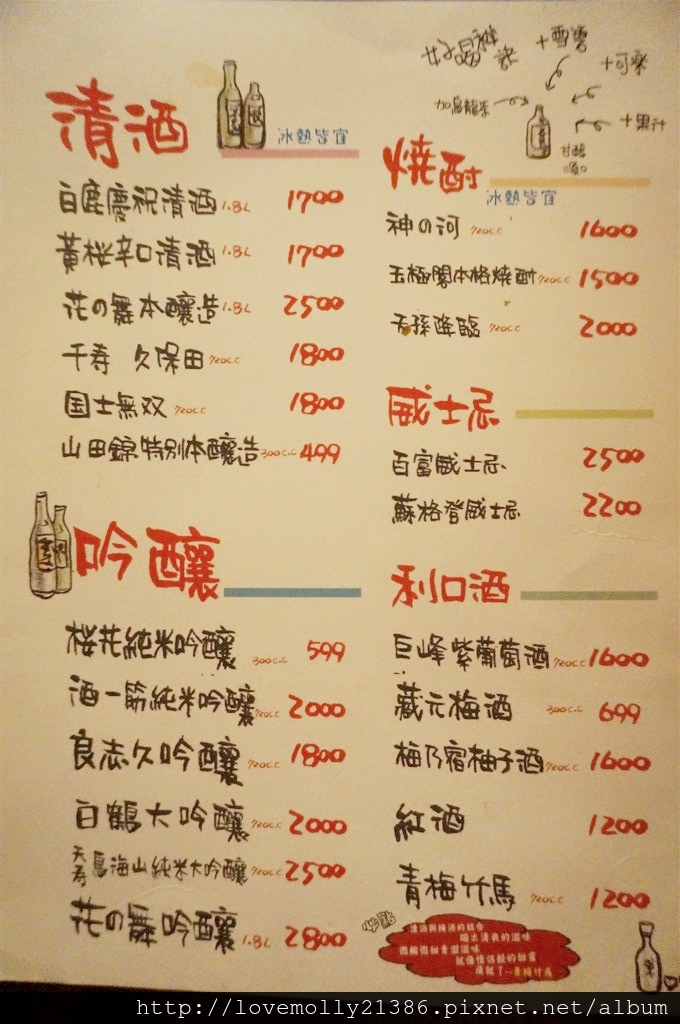 清酒
冰熱皆宜
白鹿慶祝清酒 1.8L 1700
黃桜辛口清酒 1.8L 1700
花の舞本釀造 1.8L 2500
千寿 久保田 720c.c 1800
国士無双 720c.c 1800
山田錦特別本釀造 300c.c 499
吟釀
桜花純米吟釀 300c.c 599
酒一筋純米吟釀 720c.c 2000
良志久吟釀 720c.c 1800
白鶴大吟釀 720c.c 2000
天寿鳥海山純米大吟釀 720c.c 2500
花の舞吟釀 1.8L 2800
好喝秘訣
+雪碧
+可樂
加烏龍茶
+果汁
甘醇
順口
燒酎
冰熱皆宜
神の河 720c.c 1600
玉極閣本格燒酎 720c.c 1500
天孫降臨 720c.c 2000
威士忌
百富威士忌 2500
蘇格登威士忌 2200
利口酒
巨峰紫葡萄酒 720c.c 1600
藏元梅酒 300c.c 699
梅乃宿柚子酒 720c.c 1600
紅酒 1200
青梅竹馬 720c.c 1200
必點
清酒與梅酒的結合
踏出清爽的滋味
微酸微甜香濃滋味
就像情侶般的甜蜜
這就了..青梅竹馬
http://lovemolly21386.pixnet.net/album